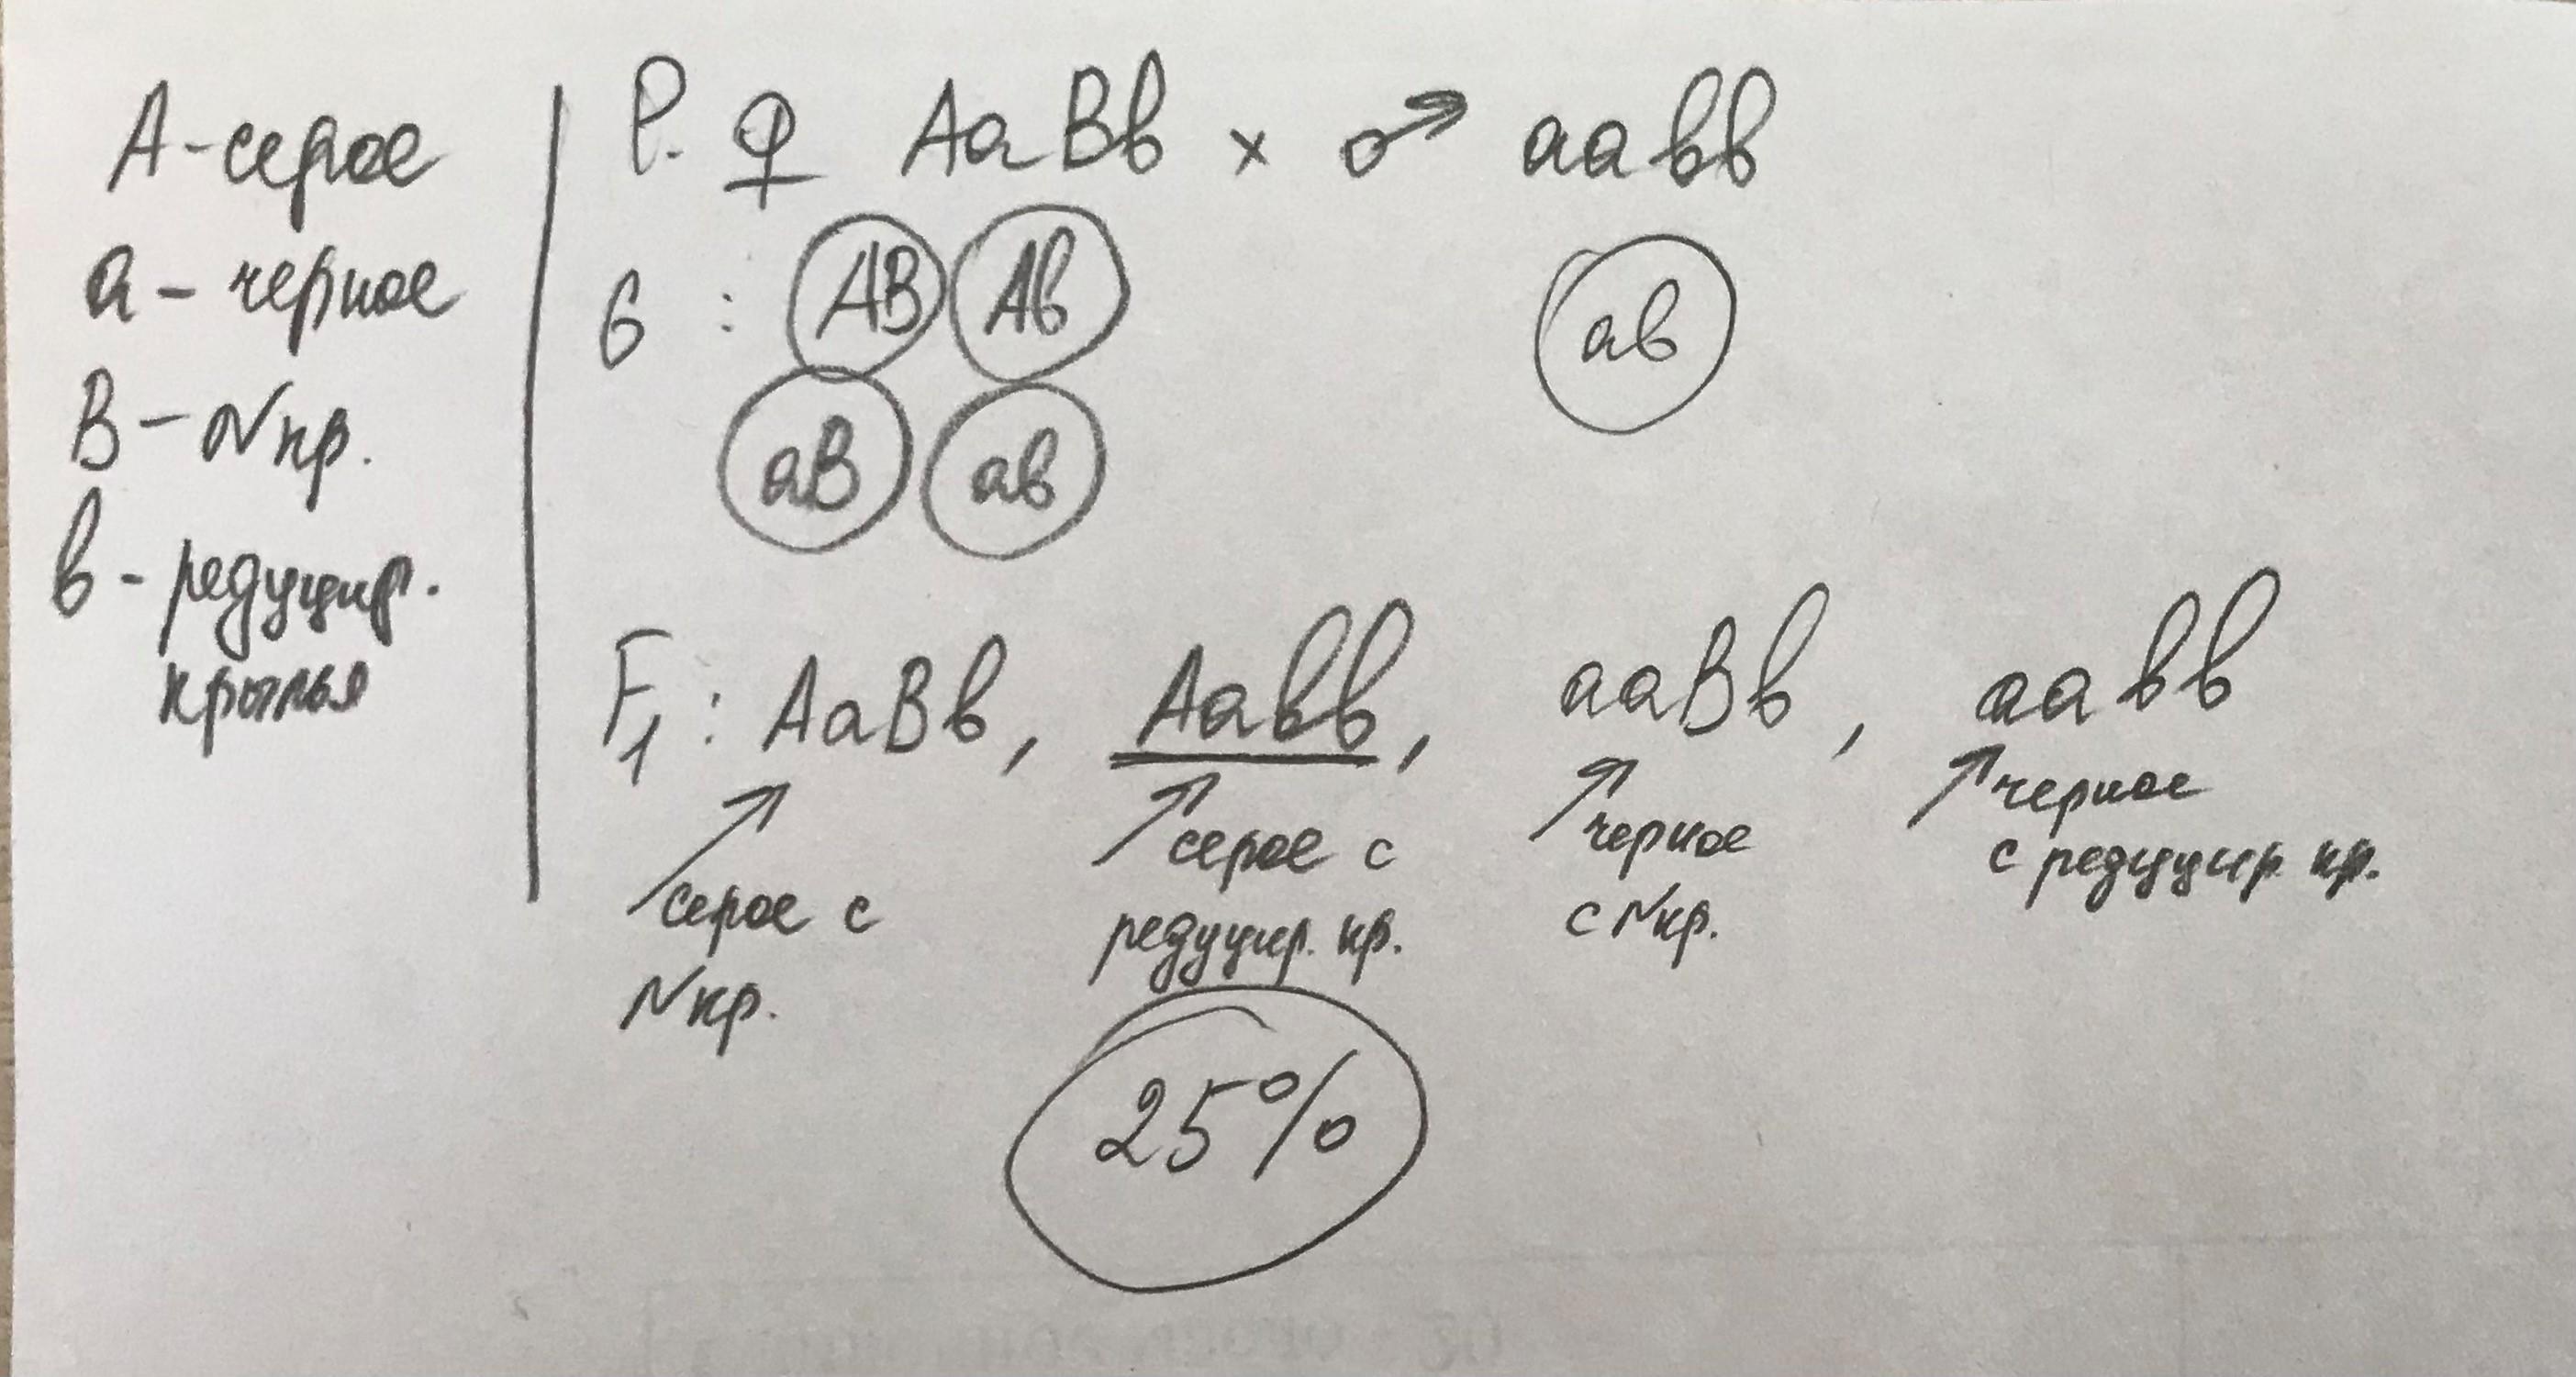 А-серое
а - черное
В - N кр.
в - редуцир.
крылья
P. ♀ АаВв × ♂ аавв
G : АВ Ав ав
аВ ав
F1 : АаВв, Аавв, ааВв, аавв
серое с
N кр.
серое с
редуцир. кр.
черное
с N кр.
черное
с редуцир. кр.
25%